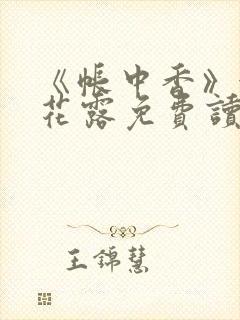 《帳中香》
花露免費讀
王錦慧